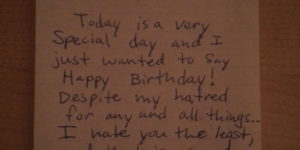 Today is a very
Special day and I
just wanted to say
Happy Birthday!
Despite my hatred
for any and all things...
I hate you the least,